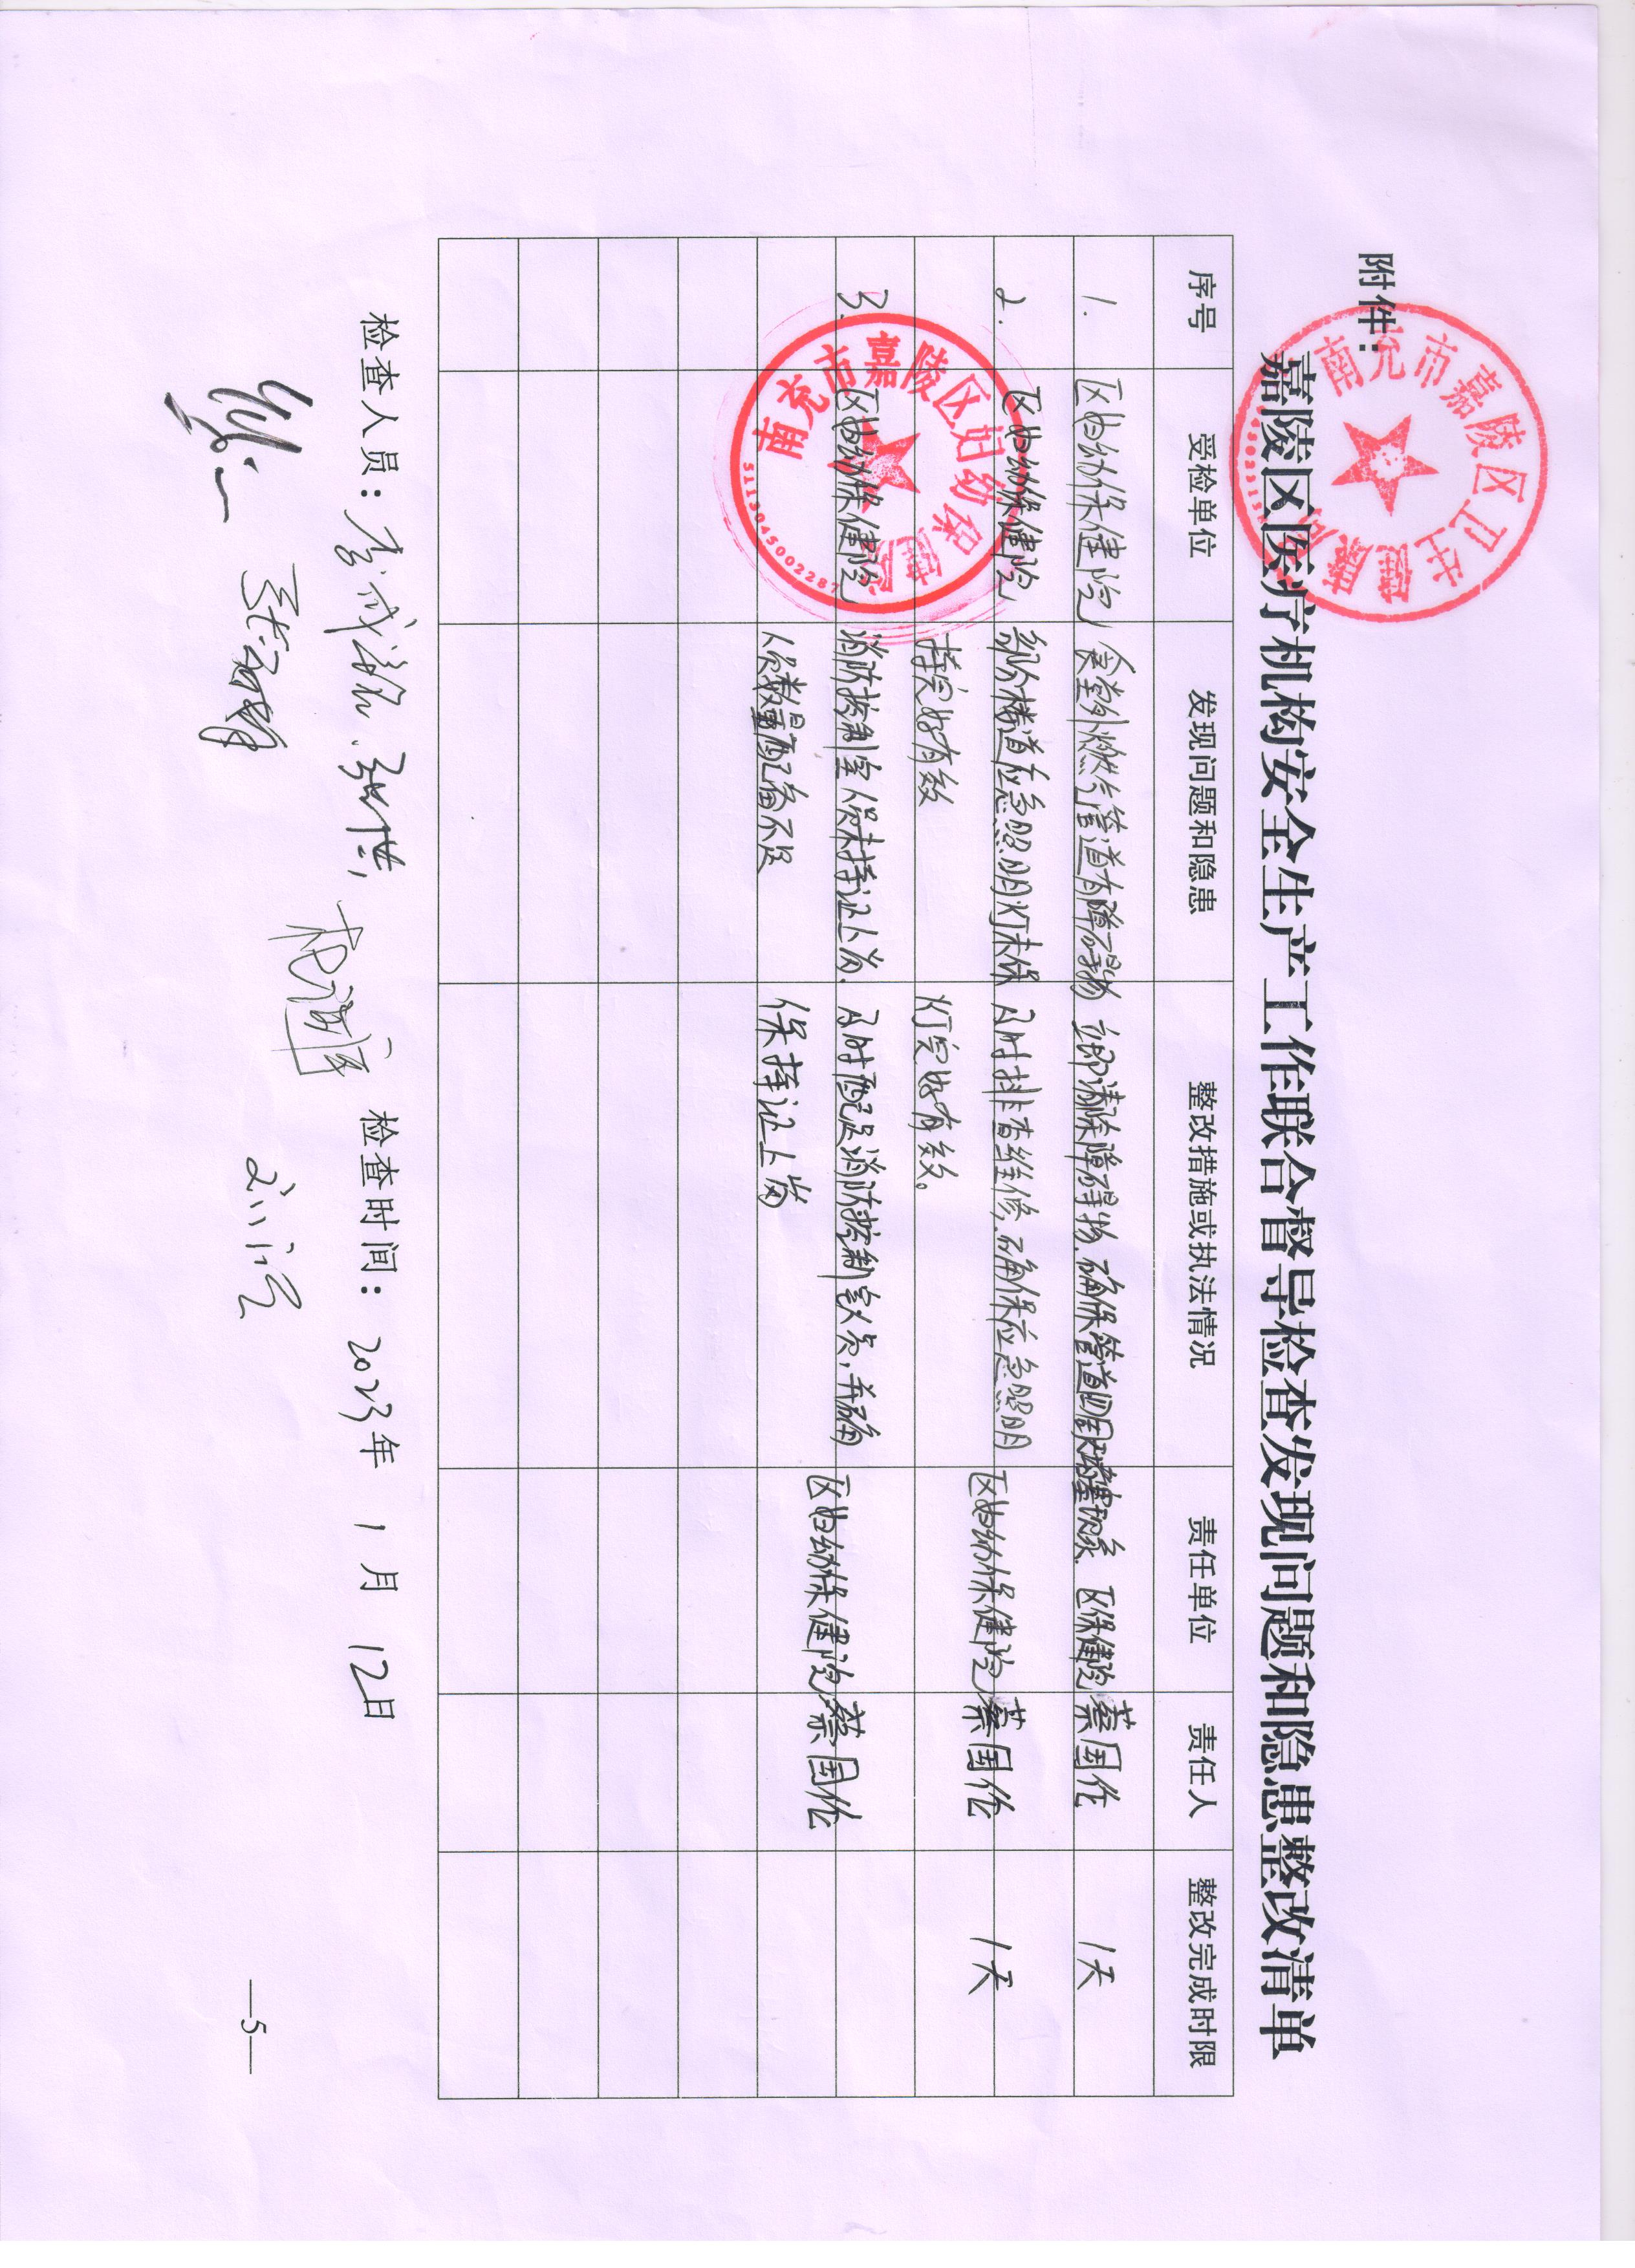 附件：
嘉陵区医疗机构安全生产工作联合督导检查发现问题和隐患整改清单
序号 受检单位 发现问题和隐患 整改措施或执法情况 责任单位 责任人 整改完成时限
1. 区妇幼保健院 食堂外燃气管道有障碍物 立即清除障碍物.确保管道周 区保健院 蔡国作 1天
2. 区妇幼保健院 部份楼道应急照明灯未保 及时排查维修.确保应急照明 区妇幼保健院 蔡国作 1天
持完好有效 灯完好有效。
3. 区妇幼保健院 消防控制室人员未持证上岗. 及时配足消防控制室人员,并确 区妇幼保健院 蔡国作
人员数量配备不足 保持证上岗
检查人员： 检查时间：2023年 1月 12日
南充市嘉陵区卫生健康局
南充市嘉陵区妇幼保健院
5113045002287
—5—